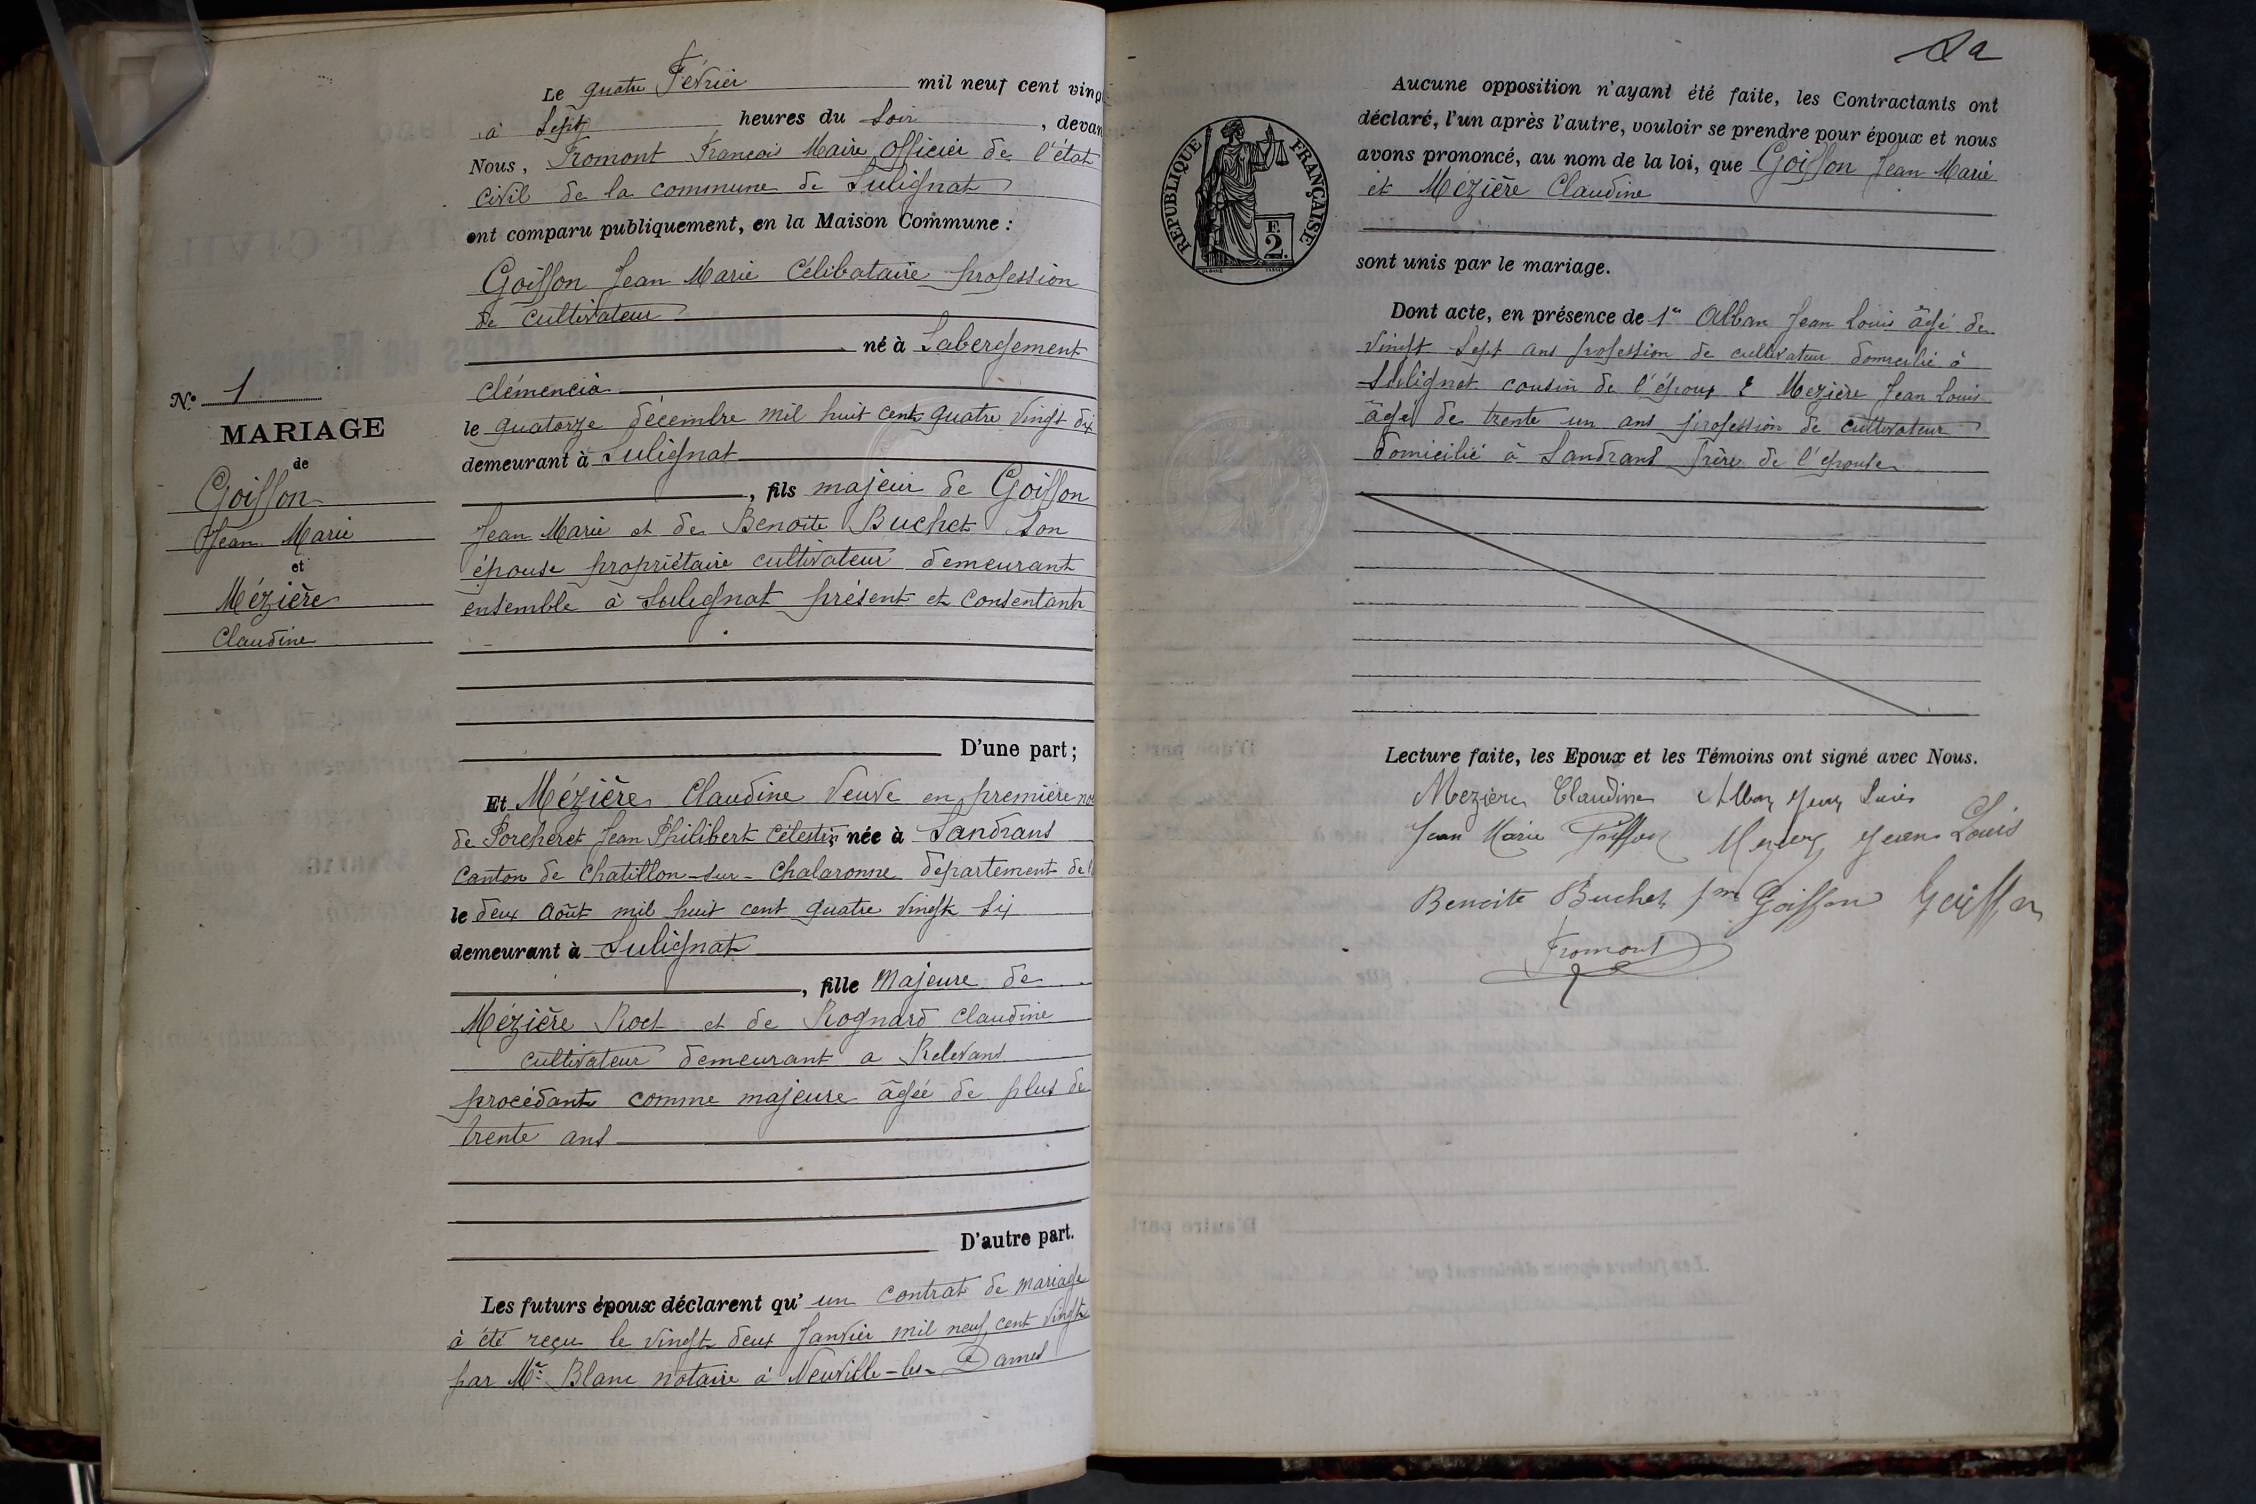 N.o 1
MARIAGE
de
Goiffon
Jean Marie
et
Mézière
Claudine
Le quatre Février mil neuf cent vingt
à Sept heures du Soir, devan
Nous, Fromont François Maire officier de l'état
civil de la commune de Sulignat
ont comparu publiquement, en la Maison Commune :
Goiffon Jean Marie Célibataire profession
de cultivateur
né à Labergement
Clémencia
le quatorze décembre mil huit cent quatre vingt dix
demeurant à Sulignat
, fils majeur de Goiffon
Jean Marie et de Benoite Buchet Son
épouse propriétaire cultivateur demeurant
ensemble à Sulignat présent et consentant
D'une part ;
Et Mézière Claudine Veuve en première no
de Porcheret Jean Philibert Célestin née à Sandrans
Canton de Chatillon-sur-Chalaronne departement de l
le deux Août mil huit cent quatre vingt six
demeurant à Sulignat
, fille majeure de
Mézière Roch et de Rognard Claudine
cultivateur demeurant a Relevans
procédant comme majeure âgée de plus de
trente ans
D'autre part.
Les futurs époux déclarent qu' un contrat de mariage
à été reçu le vingt deux Janvier mil neuf cent vingt
par Me Blanc notaire à Neuville-les-Dames
REPUBLIQUE FRANÇAISE
F.
2.
Aucune opposition n'ayant été faite, les Contractants ont
déclaré, l'un après l'autre, vouloir se prendre pour époux et nous
avons prononcé, au nom de la loi, que Goiffon Jean Marie
et Mézière Claudine
sont unis par le mariage.
Dont acte, en présence de 1er Alban Jean Louis âgé de
vingt sept ans profession de cultivateur domicilié à
Sulignat cousin de l'époux 2 Mezière Jean Louis
âgé de trente un ans profession de cultivateur
domicilié à Sandrans frère de l'epouse
Lecture faite, les Epoux et les Témoins ont signé avec Nous.
Mezière Claudine Alban Jean Louis
Jean Marie Goiffon Jean Louis
Benoite Buchet Jm Goiffon Goiffon
Fromont